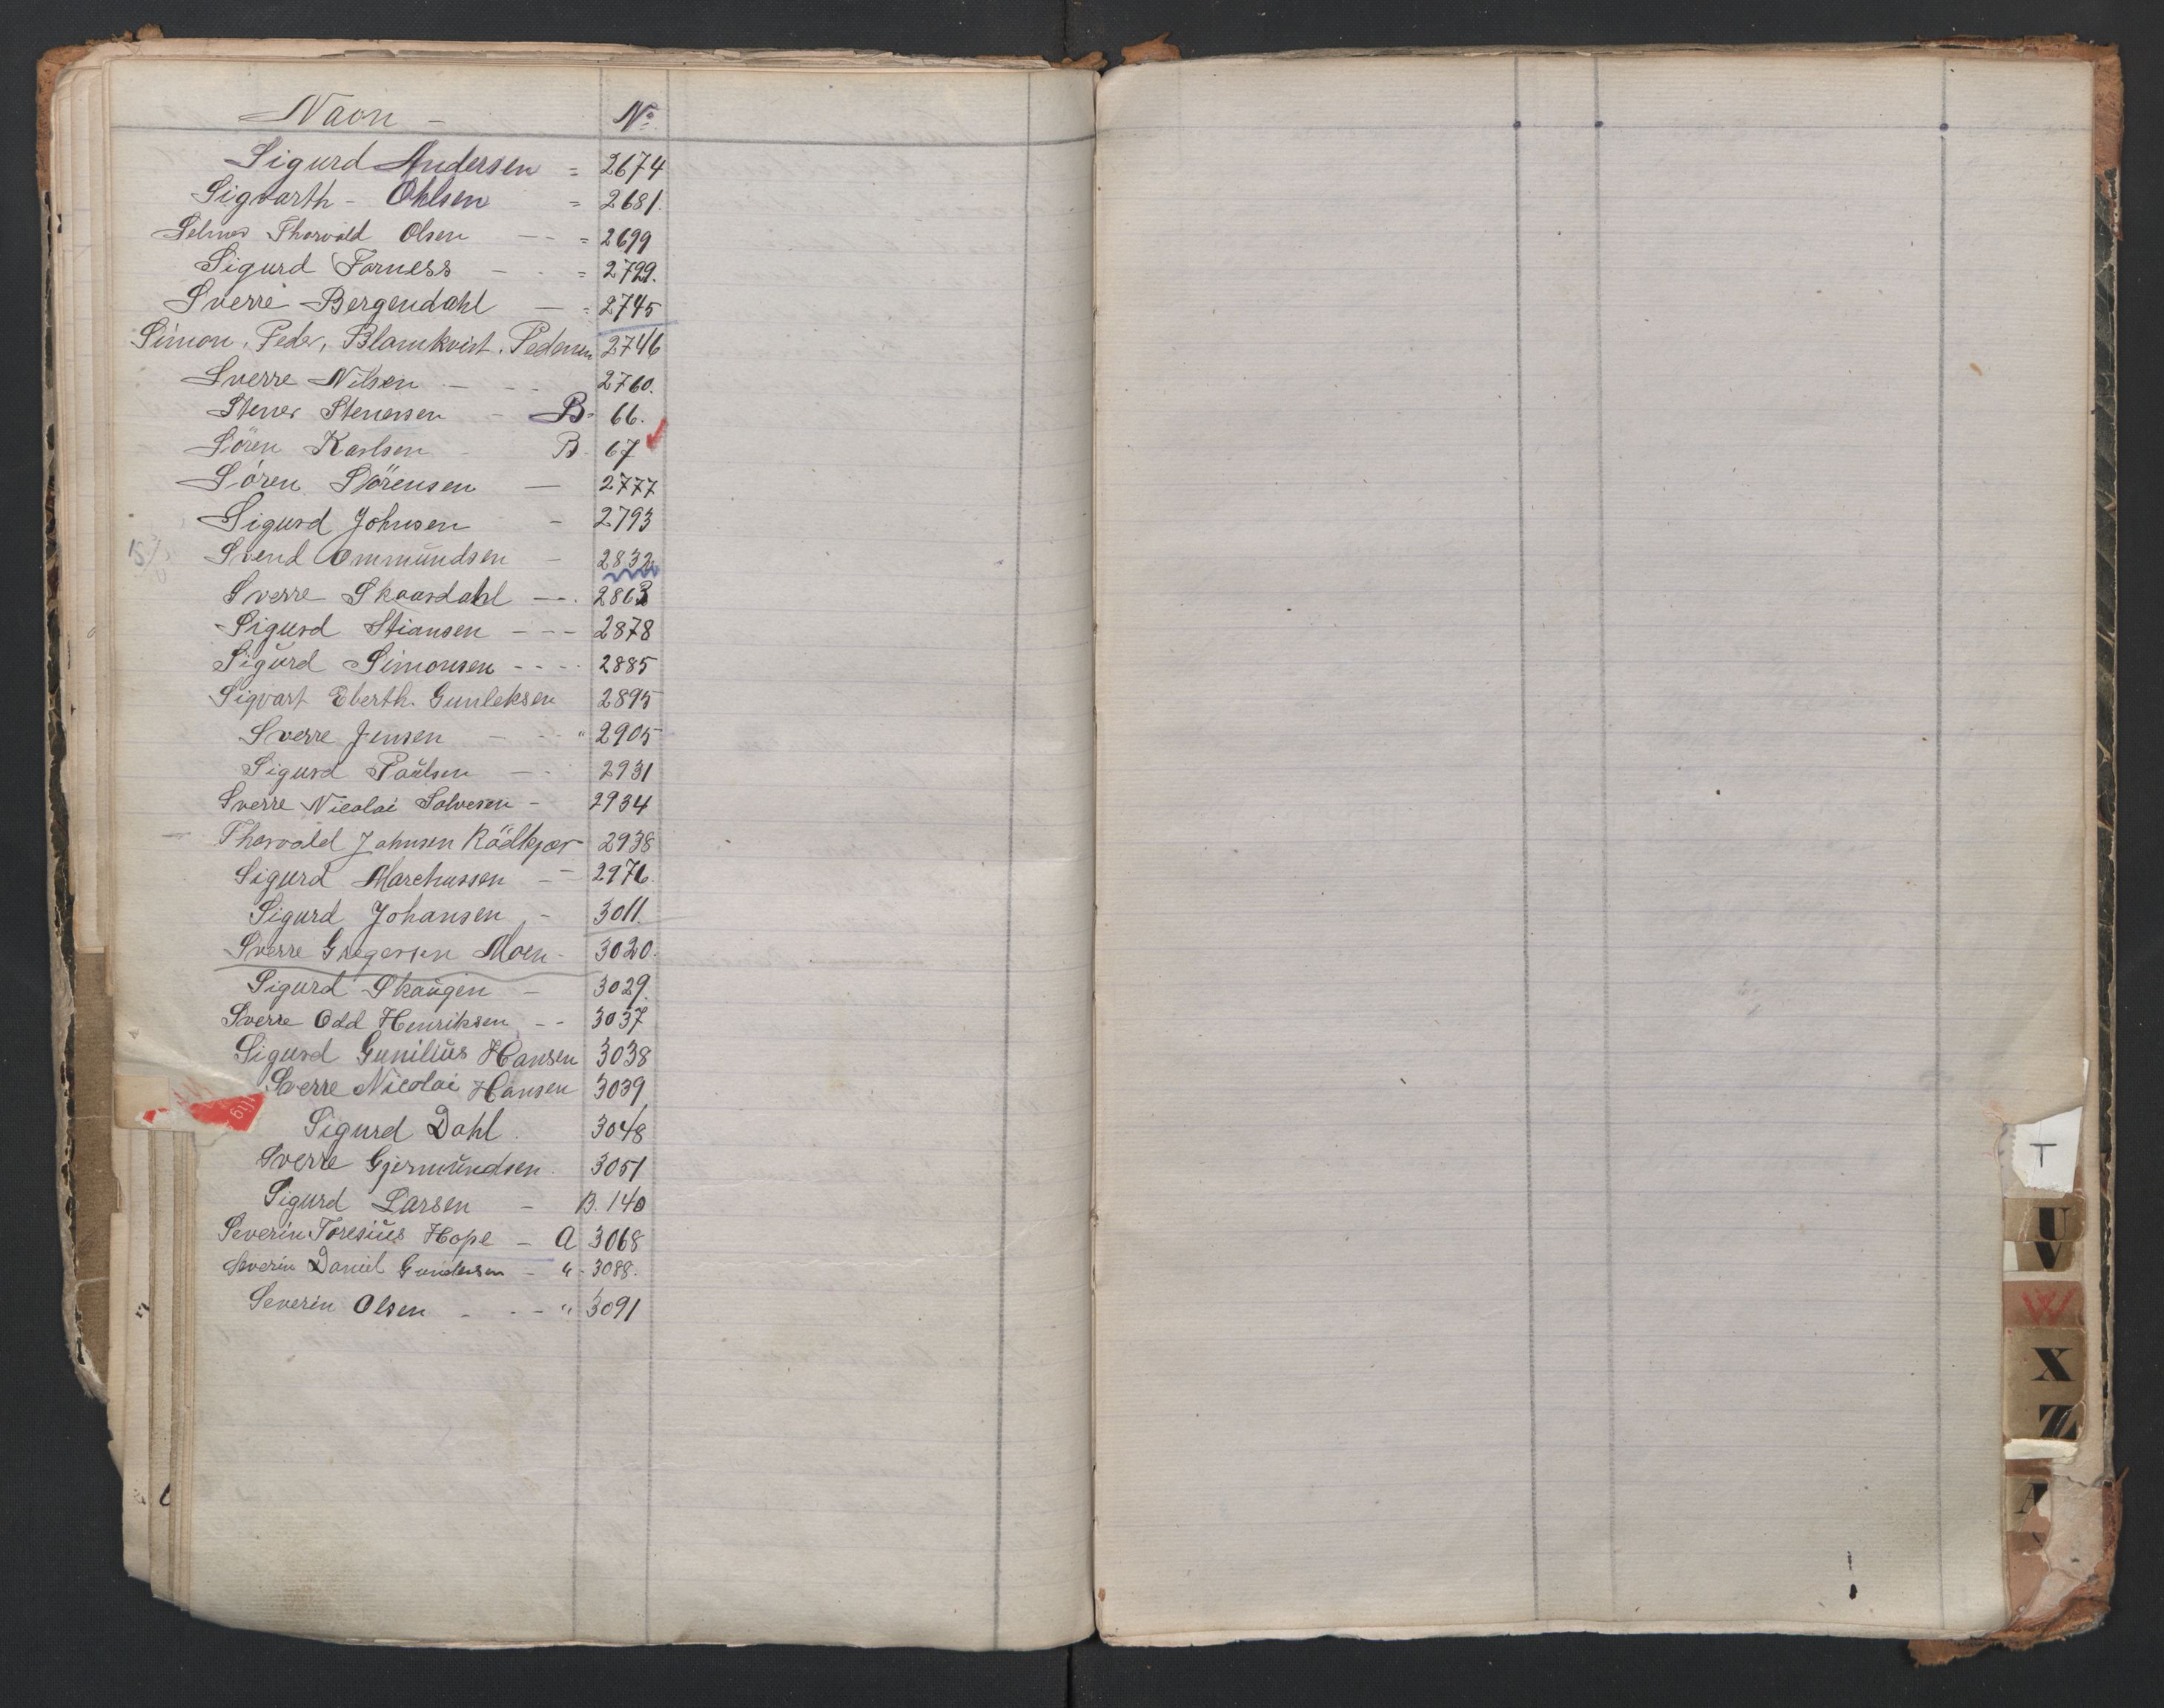 Navn - No
Sigurd Andersen = 2674
Sigvarth - Ohlsen = 2681.
Selmer Thorvald Olsen - - = 2699
Sigurd Farness - - = 2729.
Sverre Bergendahl - = 2745
Simon, Peder, Blamkvist. Pedersen 2746
Sverre Nilsen - - - 2760.
Stener Stenersen - B= 66.
Sören Karlsen - B- 67
Sören Sörensen - 2777
Sigurd Johnsen - 2793
Svend Ommundsen - 2832
Sverre Skaardahl - - . 2863
Sigurd Stiansen - - - 2878
Sigurd Simonsen - - - . 2885
Sigvart Eberth. Gunleksen 2895
Sverre Jensen - - - " 2905
Sigurd Paulsen - - 2931
Sverre Nicolai Salvesen - 2934
Thorvald Johnsen Rödkjær 2938
Sigurd Marchussen - - 2976.
Sigurd Johansen - 3011.
Sverre Gregersen Moen - 3020.
Sigurd Skaugen - 3029.
Sverre Odd Henriksen - - 3037
Sigurd Gunilius Hansen 3038
Sverre Nicolai Hansen 3039
Sigurd Dahl. 3048
Sverre Gjermundsen. 3051
Sigurd Larsen - B. 140
Severin Toresius Hope - A 3068
Severin Daniel Gundersen - " - 3088.
Severin Olsen - - - " 3091
T
U
V
W
X
Z